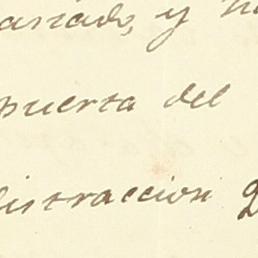 asiado, y
puerta del
distraccion